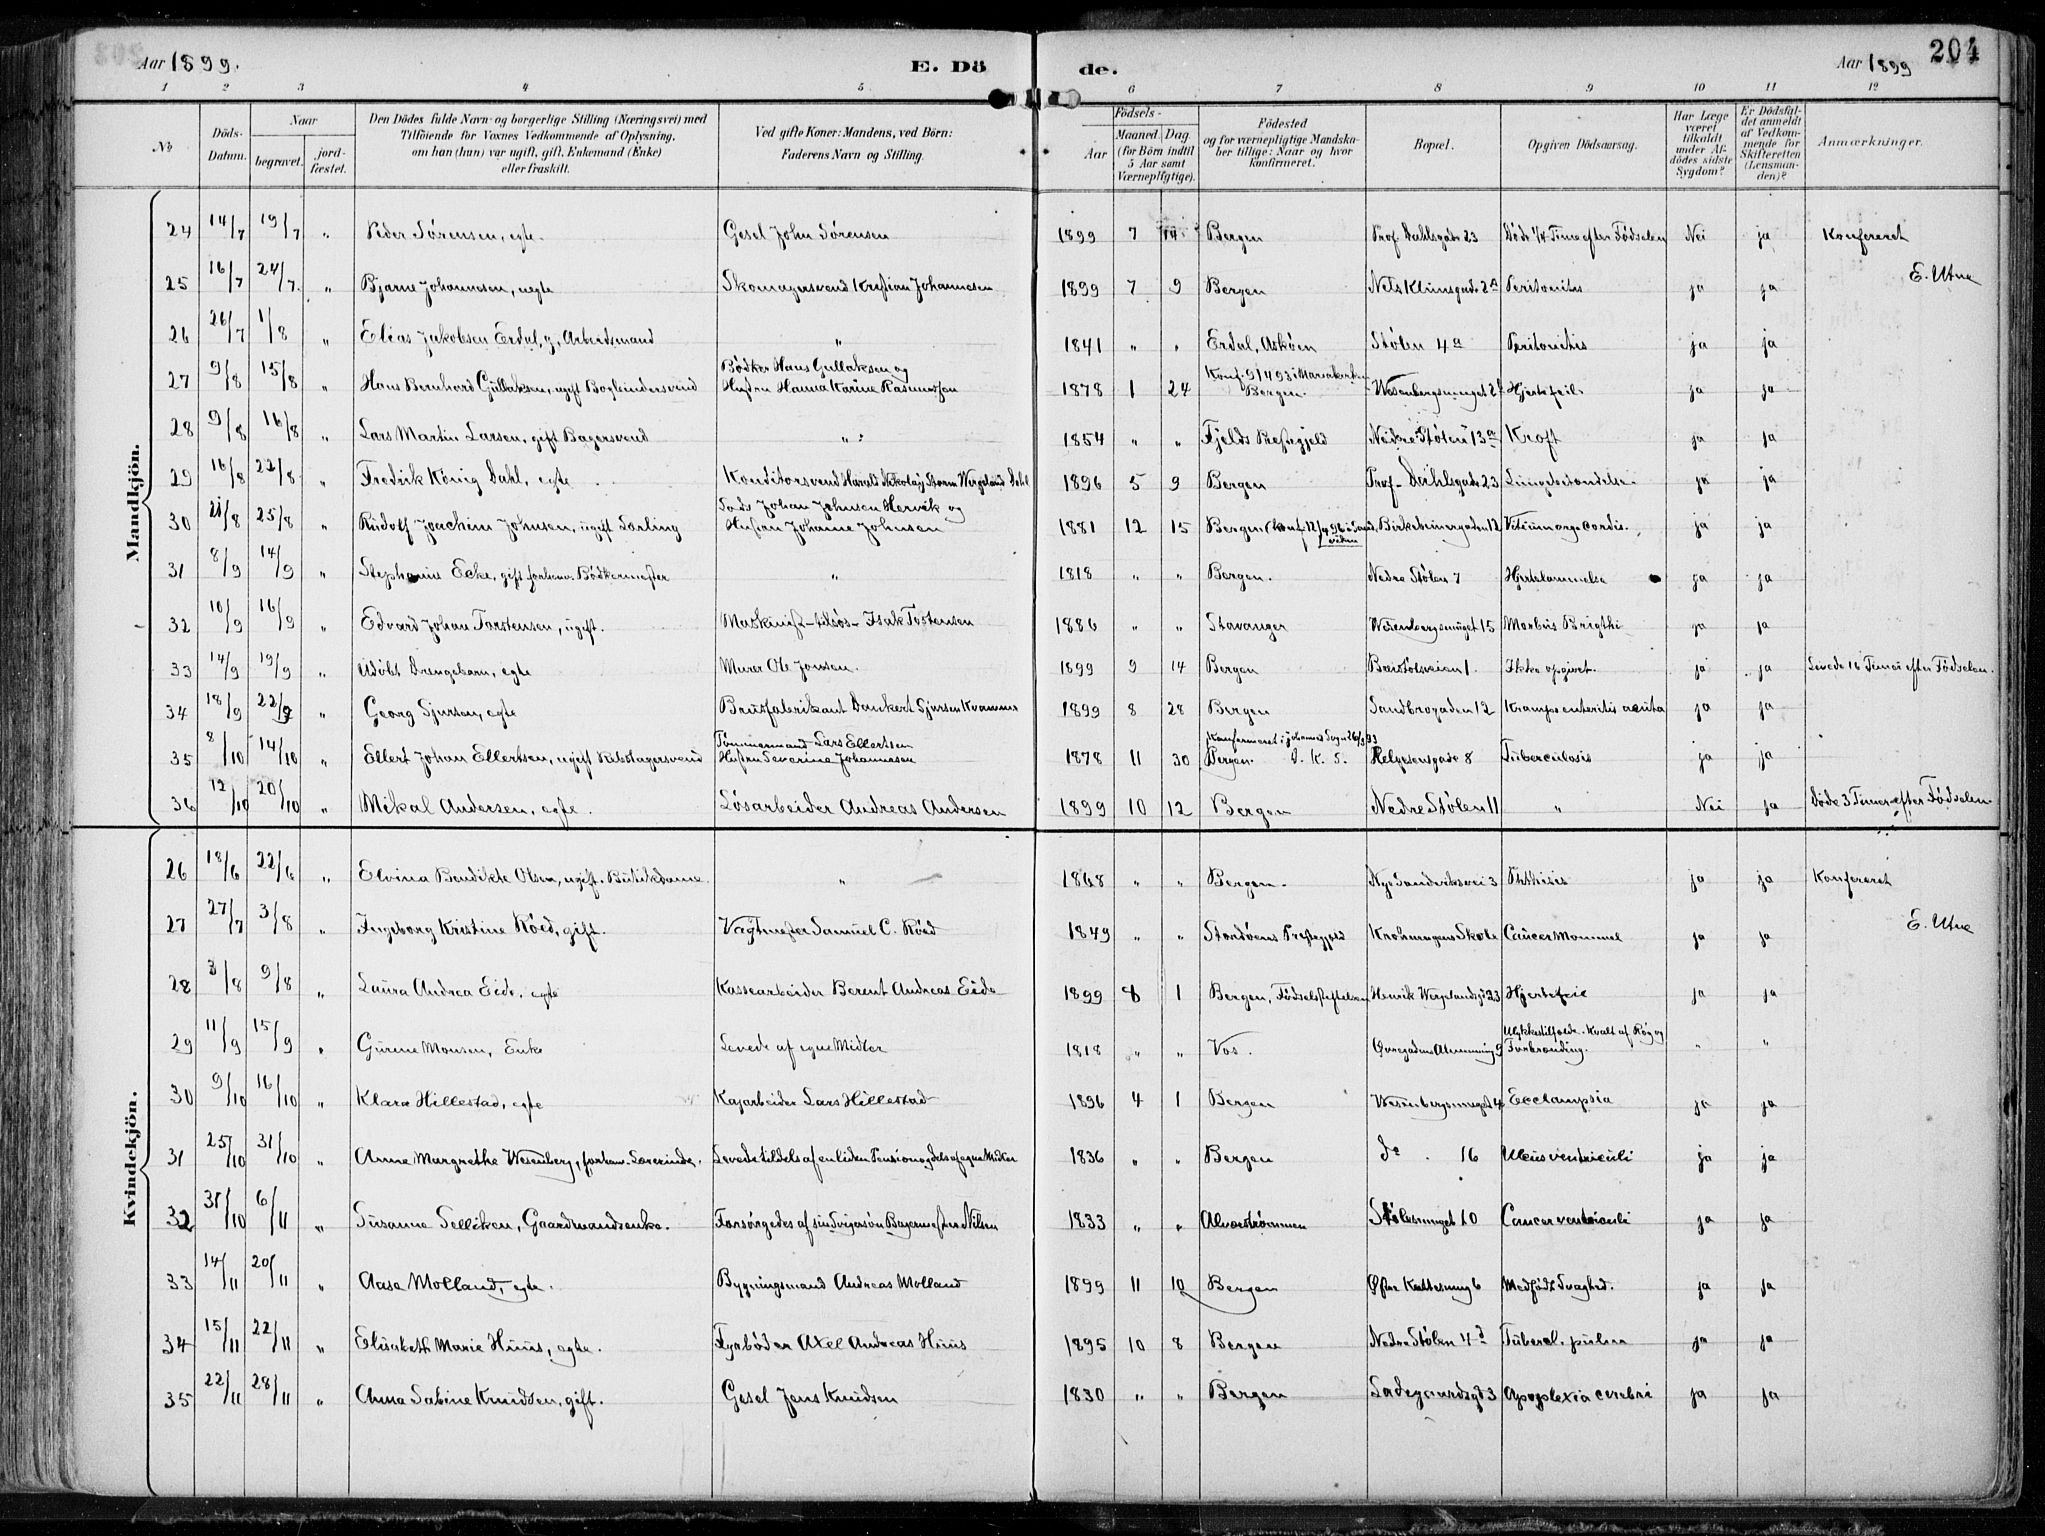 Aar 1899. E. Dö de. Aar 1899 204
1 2 3 4 5 6 7 8 9 10 11 12
No
Döds-Datum.
Naar begravet. jordfæstet.
Den Dödes fulde Navn og borgerlige Stilling (Næringsvei) med Tilföiende for Voxnes Vedkommende af Oplysning, om han (hun) var ugift, gift, Enkemand (Enke) eller fraskilt.
Ved gifte Koner: Mandens, ved Börn: Faderens Navn og Stilling.
Födsels-
Aar Maaned. Dag. (for Börn indtil 5 Aar samt Værnepligtige).
Födested og for værnepligtige Mandskaber tillige: Naar og hvor konfirmeret.
Bopæl.
Opgiven Dödsaarsag.
Har Læge været tilkaldt under Afdödes sidste Sygdom?
Er Dödsfaldet anmeldt af Vedkommende for Skifteretten (Lensmanden)?
Anmærkninger.
Mandkjön.
24 14/7 19/7 " Peder Sørensen, egte. Gesel John Sørensen 1899 7 14 Bergen Prof. Dahlsgade 23 Døde 1/4 Time efter Fødselen Nei ja Konfereret
E. Utne
25 16/7 24/7 " Bjarne Johannesen, uegte Skomagersvend Kristian Johannesen 1899 7 9 Bergen Nels Klimsgade 2a Peritonitis ja ja
26 26/7 1/8 " Elias Jakobsen Erdal, g, Arbeidsmand " 1841 " " Erdal, Askøen Stølen 4a Peritonitis ja ja
27 9/8 15/8 " Hans Bernhard Gullaksen, ugift Bogbindersvend Bødker Hans Gullaksen og Hustru Hanna Karine Rasmussen 1878 1 24 Konf. 9/4 93 i Mariakirken Bergen. Wesenbergsmuget Hjertefeil ja ja
28 9/8 16/8 " Lars Martin Larsen, gift Bagersvend " 1854 " " Fjelds Prestegjeld Nedre Stølen 13a Kræft ja ja
29 16/8 22/8 " Fredrik König Dahl, egte Konditorsvend Harald Nikolay Storm Wergeland Dahl 1896 5 9 Bergen Prof. Dahlsgade 23 Lungebetændelse. ja ja
30 21/8 25/8 " Rudolf Joachim Johnsen, ugift Lærling Johan Johnsen Hervik og Hustru Johanne Johnsen 1881 12 15 Bergen (Konf. 12/4 96 i Sandviken Birkebeinergaden 12 Vitium org. cordis. ja ja
31 8/9 14/9 " Stephanus Ecke, gift forhenv. Bødkermester " 1818 " " Bergen. Nedre Stølen 7 Hjertelammelse ja ja
32 10/9 16/9 " Edvard Johan Torstensen, ugift. Maskinist-tilsøs-Isak Tostensen 1886 " " Stavanger Wesenbergsmuget 15 Morbus Brigthi ja ja
33 14/9 19/9 " Udøbt Drengebarn, egte Murer Ole Jonsen. 1899 9 14 Bergen 1. Ikke opgivet. ja ja Levede 16 Timer efter Fødselen.
34 18/9 22/9 " Georg Sjursen, egte Brusfabrikant Danckert Sjursen Kvamme 1899 8 28 Bergen Sandbrogaden 12 Kramps enteritis acuta ja ja
35 8/10 14/10 " Ellert Johan Ellertsen, ugift Rebslagersvend Tømmermand Lars Ellertsen Hustru Severine Johannesen 1878 11 30 Konfirmeret i Johannes Sogn 26/9 93 Bergen. D. K. S. Helgesensgade 8 Tuberculosis ja ja
36 12/10 20/10 " Mikal Andersen, egte. Løsarbeider Andreas Andersen 1899 10 12 Bergen Nedre Stølen 11 " Nei ja Døde 3 Timer efter Fødselen
Kvindekjön.
26 18/6 22/6 " Elvina Bendikte Olsen, ugift. Butikdame. " 1868 " " Bergen. Nye Sandviksvei 3 Phthisis ja ja Konfereret
E. Utne
27 27/7 3/8 " Ingeborg Kristine Röed, gift. Vagtmester Samuel C. Röed 1849 " " Stordøens Prestegjeld Krohnengens Skole Cancer Mammae ja ja
28 3/8 9/8 " Laura Andrea Eide, egte Kassearbeider Berent Andreas Eide 1899 8 1 Bergen, Fødselsstiftelsen Henrik Wergelandsgd 23 Hjertefeil ja ja
29 11/9 15/9 " Gurine Monsen, Enke Levede af egne Midler 1818 " " Vos. Øvregadens Almenning 9 Ulykkestilfælde. Kvalt af Røg og Forbrænding. " "
30 9/10 16/10 " Klara Hillestad, egte Kajarbeider Lars Hillestad 1896 4 1 Bergen Wesenbergsmuget 4 Ecclampsia ja ja
31 25/10 31/10 " Anna Margrethe Wesenberg, forhenv. Lærerinde. Levede tildels af en liden Pension og dels af egne Midler 1836 " " Bergen do. 16 Ulcus ventriculi ja ja
32 31/10 6/11 " Susanne Selliken, Gaardmandsenke. Forsørgedes af sin Svigersøn Bagermester Nilsen 1833 " " Alværstrømmen Stølesmuget 10 Cancer ventriculi ja ja
33 14/11 20/11 " Aasa Molland, egte. Bygningsmand Andreas Molland 1899 11 10 Bergen Øfre Kattesmug 6 Medfødt Svaghed. ja ja
34 15/11 22/11 " Elisabeth Marie Huus, egte. Fyrbøder Axel Andreas Huus 1895 10 8 Bergen Nedre Stølen 4d Tubercl. pulm ja ja
35 22/11 28/11 " Anna Sabine Knudsen, gift. Gesel Jens Knudsen 1830 " " Bergen Ladegaardsgd 3 Apoplexia cerebri ja ja